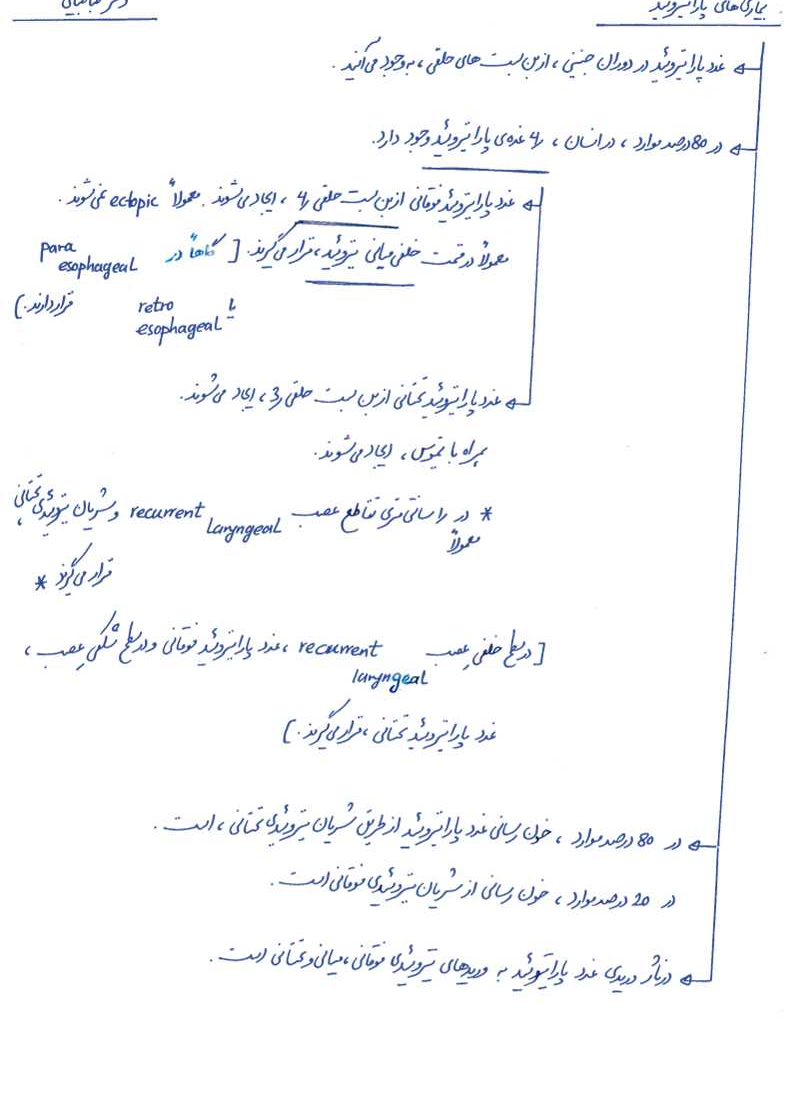 بیماری‌های پاراتیروئید
دکتر طباطبایی
غدد پاراتیروئید در دوران جنینی، از بن بست های حلقی، به وجود می‌آیند.
در 80 درصد موارد، در انسان، 4 غده‌ی پاراتیروئید وجود دارد.
غدد پاراتیروئید فوقانی از بن بست حلقی 4، ایجاد می‌شوند. معمولاً ectopic نمی‌شوند.
معمولاً در قسمت خلفی میانی تیروئید، قرار می‌گیرند. [گاهاً در para esophageal
یا retro esophageal قرار دارند.]
غدد پاراتیروئید تحتانی از بن بست حلقی 3، ایجاد می‌شوند.
همراه با تیموس، ایجاد می‌شوند.
* در 1 سانتی متری تقاطع عصب recurrent laryngeal و شریان تیروئیدی تحتانی،
معمولاً
قرار می‌گیرند *
[در سطح خلفی عصب recurrent laryngeal، غدد پاراتیروئید فوقانی و در سطح شکمی عصب،
غدد پاراتیروئید تحتانی، قرار می‌گیرند.]
در 80 درصد موارد، خون رسانی غدد پاراتیروئید از طریق شریان تیروئیدی تحتانی، است.
در 20 درصد موارد، خون رسانی از شریان تیروئیدی فوقانی است.
درناژ وریدی غدد پاراتیروئید به وریدهای تیروئیدی فوقانی، میانی و تحتانی است.